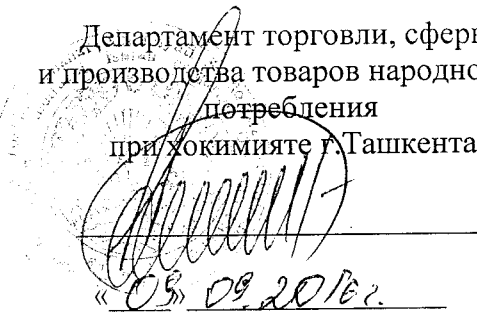 Департамент торговли, сферы
и производства товаров народно
потребления
при хокимияте г.Ташкента
« 09» 09.2016г.